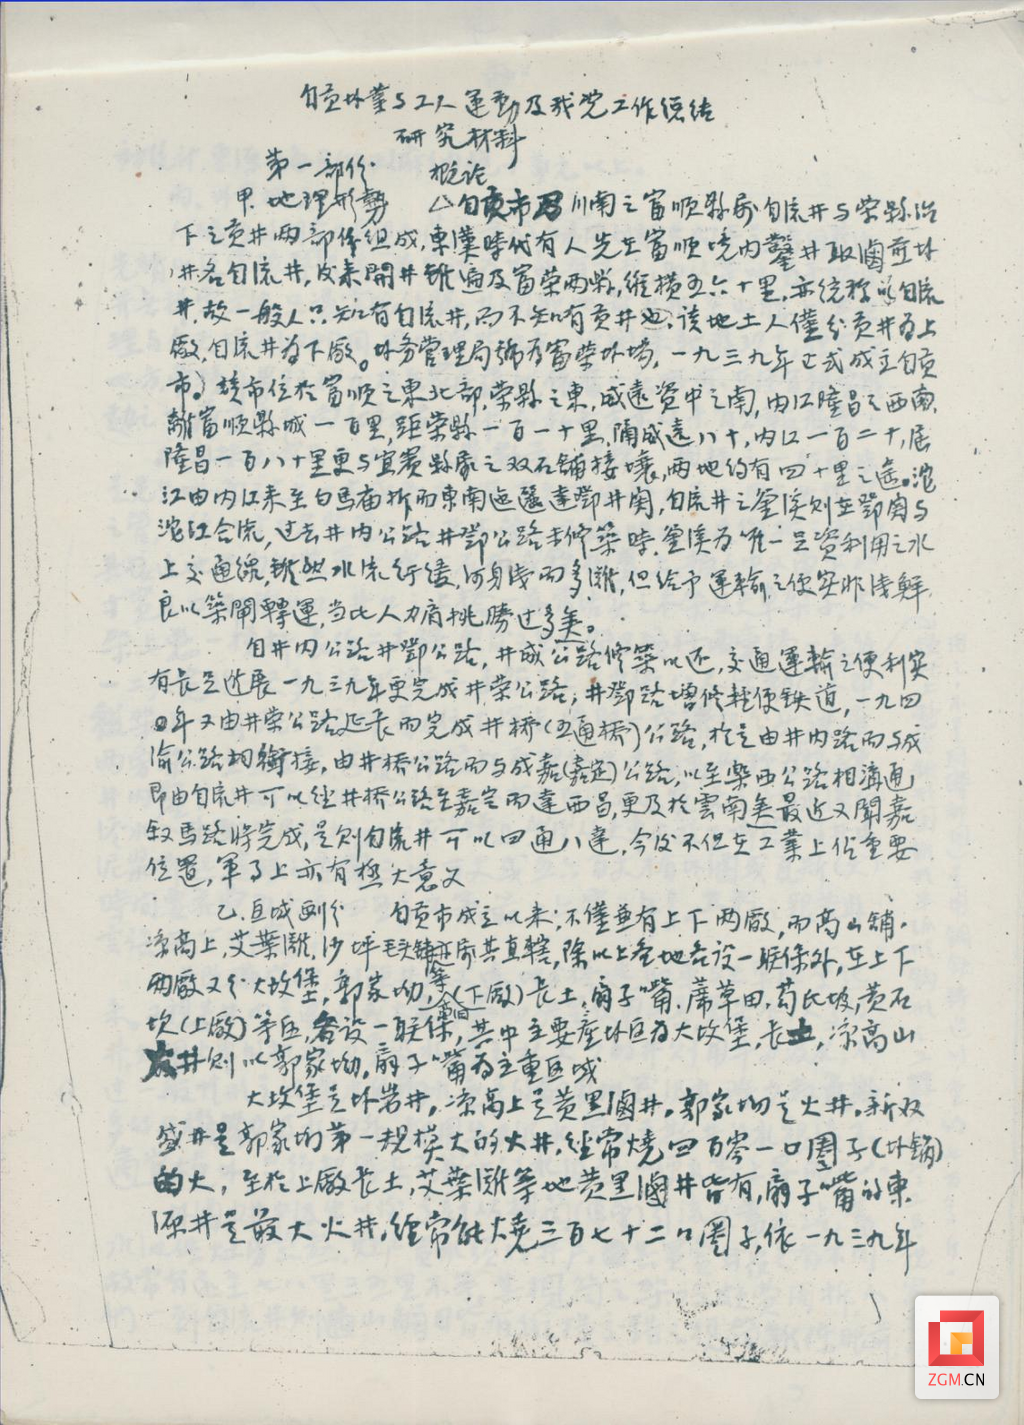 自贡圤業与工人運動及我党工作總结
研究材料
第一部份 概论
甲.地理形勢 △自貢市乃川南之富順縣屬自流井与荣縣治
下之贡井两部份組成,東漢時代有人先在富順境内鑿井取滷煎圤
井名自流井,后来開井雖遍及富荣两縣,縱横五六十里,亦统称以自流
井,故一般人只知有自流井,而不知有贡井也,该地土人僅分贡井为上
廠,自流井为下廠。圤务管理局號为富荣圤場,一九三九年正式成立自贡
市。)該市位於富順之東北部,荣縣之東,威遠资中之南,内江隆昌之西南,
離富順縣城一百里,距荣縣一百一十里,隔威遠八十,内江一百二十,居
隆昌一百八十里更与宜賓縣屬之双石铺接壤,两地约有四十里之遥。沱
江由内江来至白馬庙折而東南迤邐達鄧井関,自流井之釜溪则在鄧関与
沱江合流,过去井内公路井鄧公路未修築時,釜溪为唯一足資利用之水
上交通線,雖然水流行缓,河身浅而多灘,但给予運輸之便实非浅鲜
良以築閘轉運,当比人力肩挑勝过多矣。
自井内公路井鄧公路,井威公路修築以还,交通運輸之便利实
有長足进展一九三九年更完成井荣公路;井鄧路增修輕便铁道,一九四
〇年又由井荣公路延長而完成井橋(五通橋)公路,於是由井内路而与成
渝公路相銜接,由井橋公路而与成嘉(嘉定)公路,以至樂西公路相溝通
即由自流井可以经井橋公路至嘉定而達西昌,更及於雲南矣最近又聞嘉
叙馬路将完成,是则自流井可以四通八達,今後不但在工業上佔重要
位置,軍事上亦有極大意义
乙.区域劃分 自贡市成立以来;不僅並有上下两廠,而高山铺.
凉高上,艾葉灘,沙坪毛头铺亦屬其直轄,除以上各地各设一联保外,在上下
两廠又分大坟堡,郭家坳,(下廠)長土,扇子嘴.蓆草田,苟氏坡,黄石
坎(上廠)等区,各设一联保,其中主要産圤区为大坟堡,長土,凉高山
火井则以郭家坳,扇子嘴为主重区域
大坟堡是圤岩井,凉高上是黄黑滷井.郭家坳是火井.新双
盛井是郭家坳第一規模大的火井,经常燒四百零一口圈子(圤锅)
的火,至於上廠長土,艾葉灘等地黄黑滷井皆有,扇子嘴的東
源井是最大火井,经常能燒三百七十二口圈子,依一九三九年
ZGM.CN